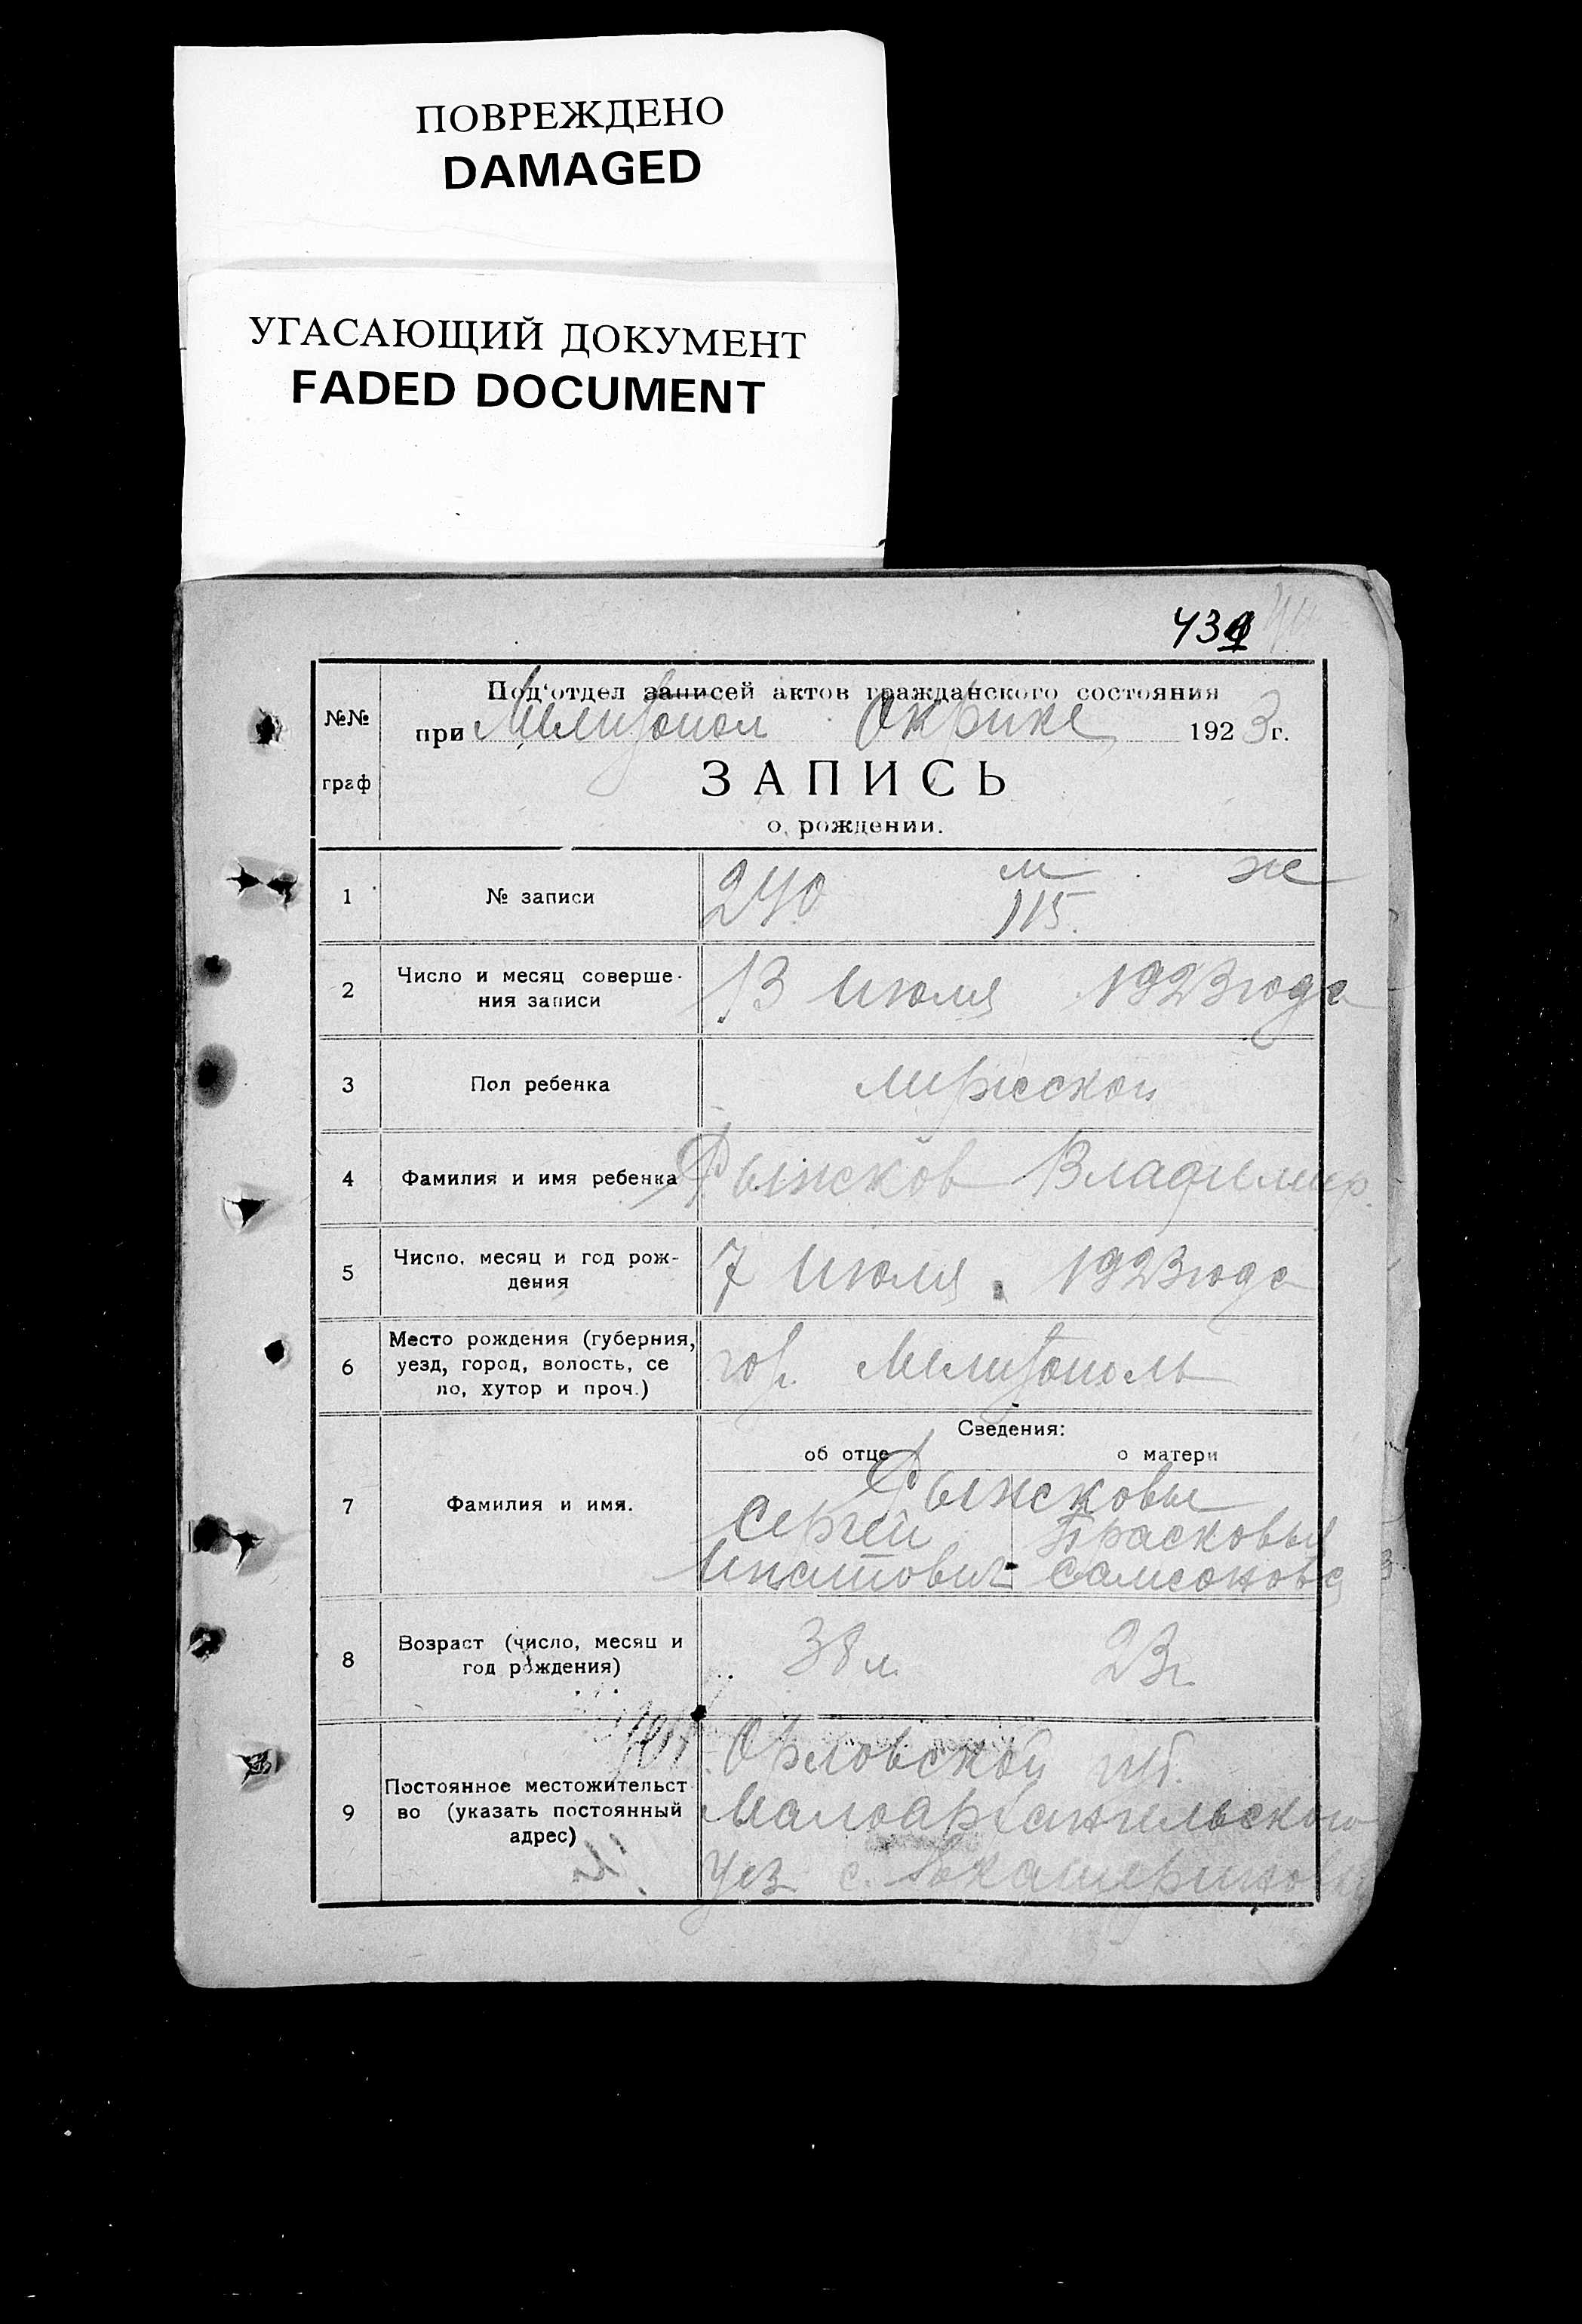 ПОВРЕЖДЕНО
DAMAGED
УГАСАЮЩИЙ ДОКУМЕНТ
FADED DOCUMENT
Под‘отдел записей актов гражданского состояния
№№ при Мелитопол 1923 г.
граф ЗАПИСЬ
о рождении.
м ж
1 № записи 240 115.
2 Число и месяц соверше-
ния записи 13 Июля 1923 года
3 Пол ребенка мужской
4 Фамилия и имя ребенка Рыжков Владимир
5 Число, месяц и год рож-
дения 7 Июля 1923 года
6 Место рождения (губерния,
уезд, город, волость, се
ло, хутор и проч.) гор. Мелитополь
Сведения:
об отце о матери
7 Фамилия и имя. Рыжковы
Сергей Прасковья
Ипатович Самсоновна
8 Возраст (число, месяц и
год рождения) 38 л. 23 г.
9 Постоянное местожительст
во (указать постоянный
адрес) Орловской губ.
Малоархангельского
уез. с.